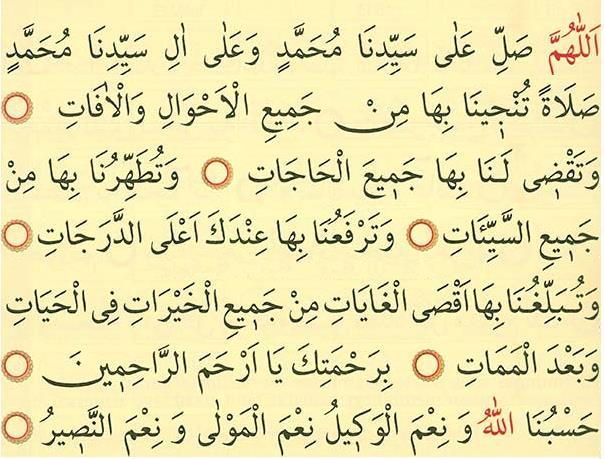 اَللّٰهُمَّ صَلِّ عَلٰى سَيِّدِنَا مُحَمَّدٍ وَعَلٰى اٰلِ سَيِّدِنَا مُحَمَّدٍ
صَلَاةً تُنْجٖينَا بِهَا مِنْ جَمٖيعِ الْاَحْوَالِ وَالْاٰفَاتِ
وَتَقْضٖى لَنَا بِهَا جَمٖيعَ الْحَاجَاتِ وَتُطَهِّرُنَا بِهَا مِنْ
جَمٖيعِ السَّيِّئَاتِ وَتَرْفَعُنَا بِهَا عِنْدَكَ اَعْلَى الدَّرَجَاتِ
وَتُبَلِّغُنَا بِهَا اَقْصَى الْغَايَاتِ مِنْ جَمٖيعِ الْخَيْرَاتِ فِى الْحَيَاتِ
وَبَعْدَ الْمَمَاتِ بِرَحْمَتِكَ يَا اَرْحَمَ الرَّاحِمٖينَ
حَسْبُنَا اللّٰهُ وَ نِعْمَ الْوَكٖيلُ نِعْمَ الْمَوْلٰى وَ نِعْمَ النَّصٖيرُ